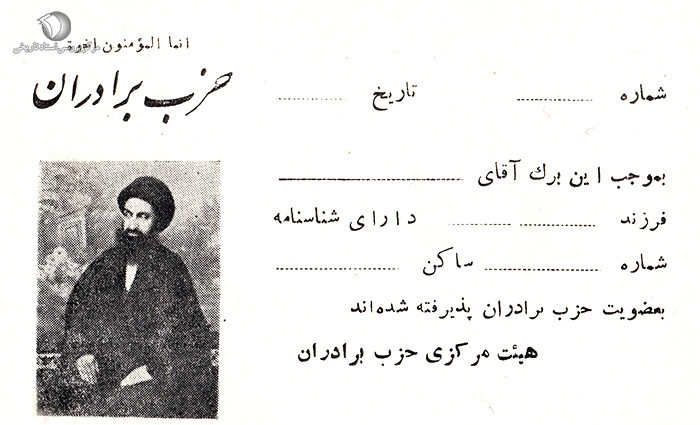 مرکز بررسی اسناد تاریخی
انما المؤمنون اخوة
حزب برادران
شماره ............ تاریخ ............
بموجب این برك آقای ............
فرزند ............ دارای شناسنامه
شماره ............ ساکن ............
بعضویت حزب برادران پذیرفته شده‌اند
هیئت مرکزی حزب برادران